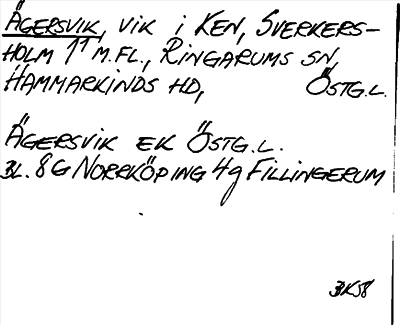 ÄGERSVIK, VIK I KEN, SVERKERS-
HOLM 1¹ M.FL., RINGARUMS SN,
HAMMARKINDS HD, ÖSTG.L.
ÄGERSVIK EK ÖSTG.L.
BL. 8G NORRKÖPING 4g FILLINGERUM